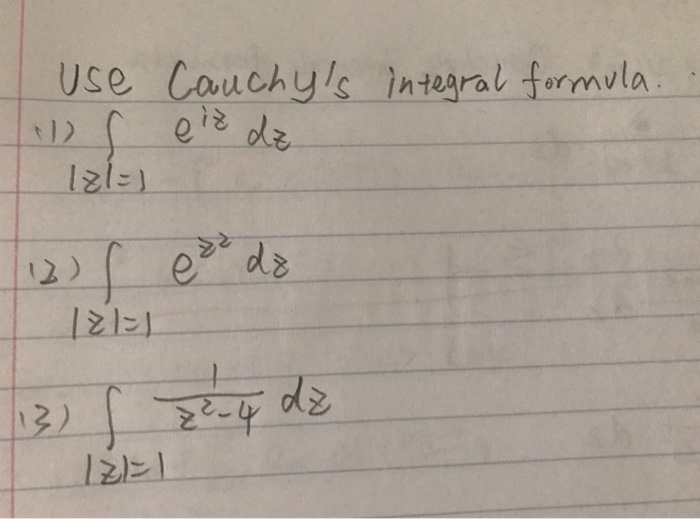 Use Cauchy's integral formula.
(1) ∫ e^{iz} dz
|z|=1
(2) ∫ e^{z^2} dz
|z|=1
(3) ∫ 1/(z^2-4) dz
|z|=1